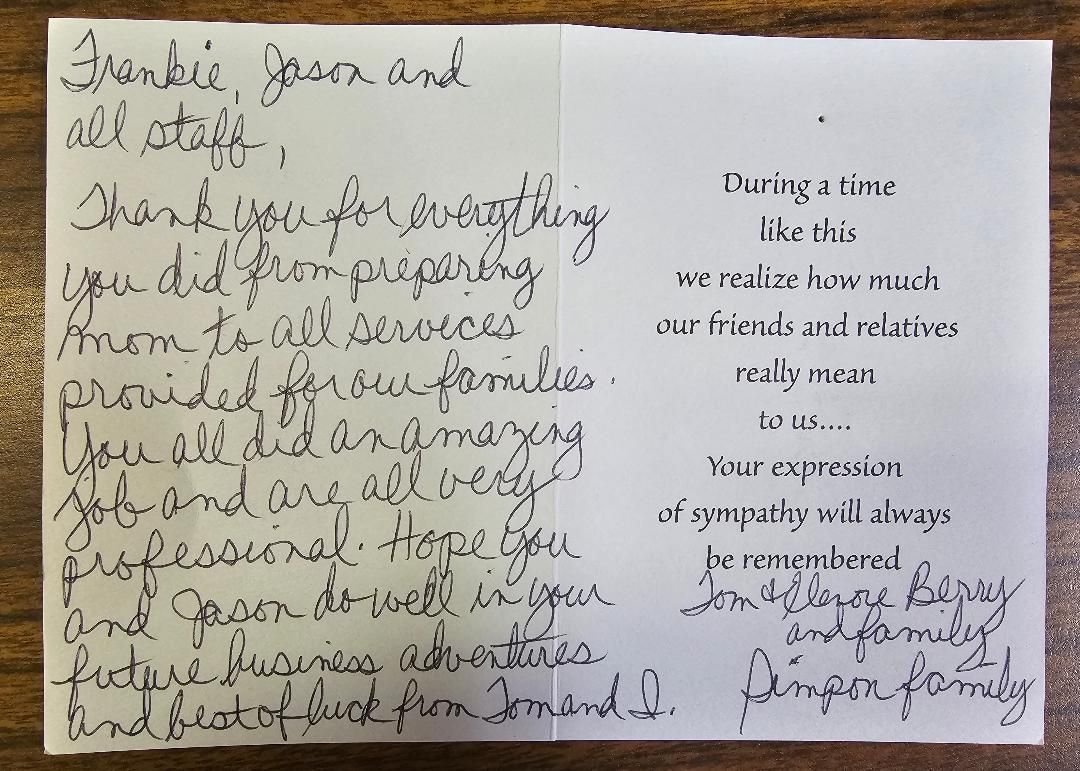 Frankie, Jason and
all staff,
Thank you for everything
you did from preparing
mom to all services
provided for our families.
You all did an amazing
job and are all very
professional. Hope you
and Jason do well in your
future business adventures
and best of luck from Tom and I.
During a time
like this
we realize how much
our friends and relatives
really mean
to us....
Your expression
of sympathy will always
be remembered
Tom & Berry
and family
family